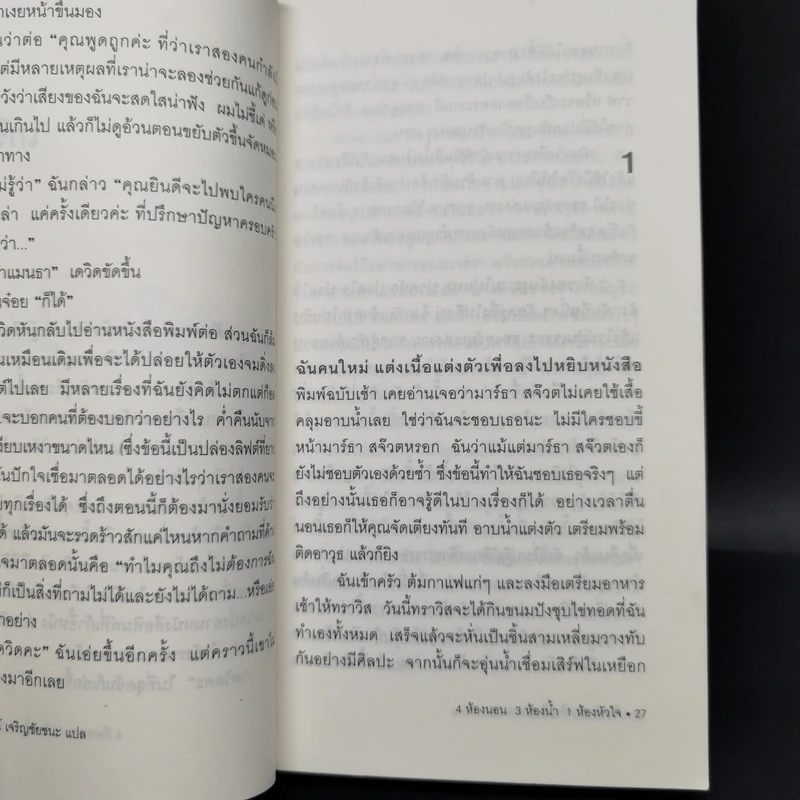 าเงยหน้าขึ้นมอง
นว่าต่อ "คุณพูดถูกค่ะ ที่ว่าเราสองคนกำลัง
ต่มีหลายเหตุผลที่เราน่าจะลองช่วยกันแก้ดูก่อน
วังว่าเสียงของฉันจะสดใสน่าฟัง ผมไม่ชี้เด่
นเกินไป แล้วก็ไม่ดูอ้วนตอนขยับตัวขึ้นจัดหมอน
าทาง
ม่รู้ว่า" ฉันกล่าว "คุณยินดีจะไปพบใครคนนึง
ล่า แค่ครั้งเดียวค่ะ ที่ปรึกษาปัญหาครอบครัว
ว่า..."
าแมนธา" เดวิดขัดขึ้น
นจ๋อย "ก็ได้"
วิดหันกลับไปอ่านหนังสือพิมพ์ต่อ ส่วนฉันก็ล้ม
นเหมือนเดิมเพื่อจะได้ปล่อยให้ตัวเองจมดิ่งลง
ต์ไปเลย มีหลายเรื่องที่ฉันยังคิดไม่ตกแต่ก็ยัง
จะบอกคนที่ต้องบอกว่าอย่างไร ค่ำคืนนับจาก
งียบเหงาขนาดไหน (ซึ่งข้อนี้เป็นปล่องลิฟต์ที่ยาว
ันปักใจเชื่อมาตลอดได้อย่างไรว่าเราสองคนจะ
ยทุกเรื่องได้ ซึ่งถึงตอนนี้ก็ต้องมานั่งยอมรับว่า
ด้ แล้วมันจะรวดร้าวสักแค่ไหนหากคำถามที่ค้าง
จมาตลอดนั้นคือ "ทำไมคุณถึงไม่ต้องการฉัน
ก็เป็นสิ่งที่ถามไม่ได้และยังไม่ได้ถาม...หรือเอ่ย
าอย่าง
ดวิดคะ" ฉันเอ่ยขึ้นอีกครั้ง แต่คราวนี้เขาไม่
งมาอีกเลย
เจริญชัยชนะ แปล
1
ฉันคนใหม่ แต่งเนื้อแต่งตัวเพื่อลงไปหยิบหนังสือ
พิมพ์ฉบับเช้า เคยอ่านเจอว่ามาร์ธา สจ๊วตไม่เคยใช้เสื้อ
คลุมอาบน้ำเลย ใช่ว่าฉันจะชอบเธอนะ ไม่มีใครชอบขี้
หน้ามาร์ธา สจ๊วตหรอก ฉันว่าแม้แต่มาร์ธา สจ๊วตเองก็
ยังไม่ชอบตัวเองด้วยซ้ำ ซึ่งข้อนี้ทำให้ฉันชอบเธอจริงๆ แต่
ถึงอย่างนั้นเธอก็อาจรู้ดีในบางเรื่องก็ได้ อย่างเวลาตื่น
นอนเธอก็ให้คุณจัดเตียงทันที อาบน้ำแต่งตัว เตรียมพร้อม
ติดอาวุธ แล้วก็ยิง
ฉันเข้าครัว ต้มกาแฟแก่ๆ และลงมือเตรียมอาหาร
เช้าให้ทราวิส วันนี้ทราวิสจะได้กินขนมปังชุบไข่ทอดที่ฉัน
ทำเองทั้งหมด เสร็จแล้วจะหั่นเป็นชิ้นสามเหลี่ยมวางทับ
กันอย่างมีศิลปะ จากนั้นก็จะอุ่นน้ำเชื่อมเสิร์ฟในเหยือก
4 ห้องนอน 3 ห้องน้ำ 1 ห้องหัวใจ • 27